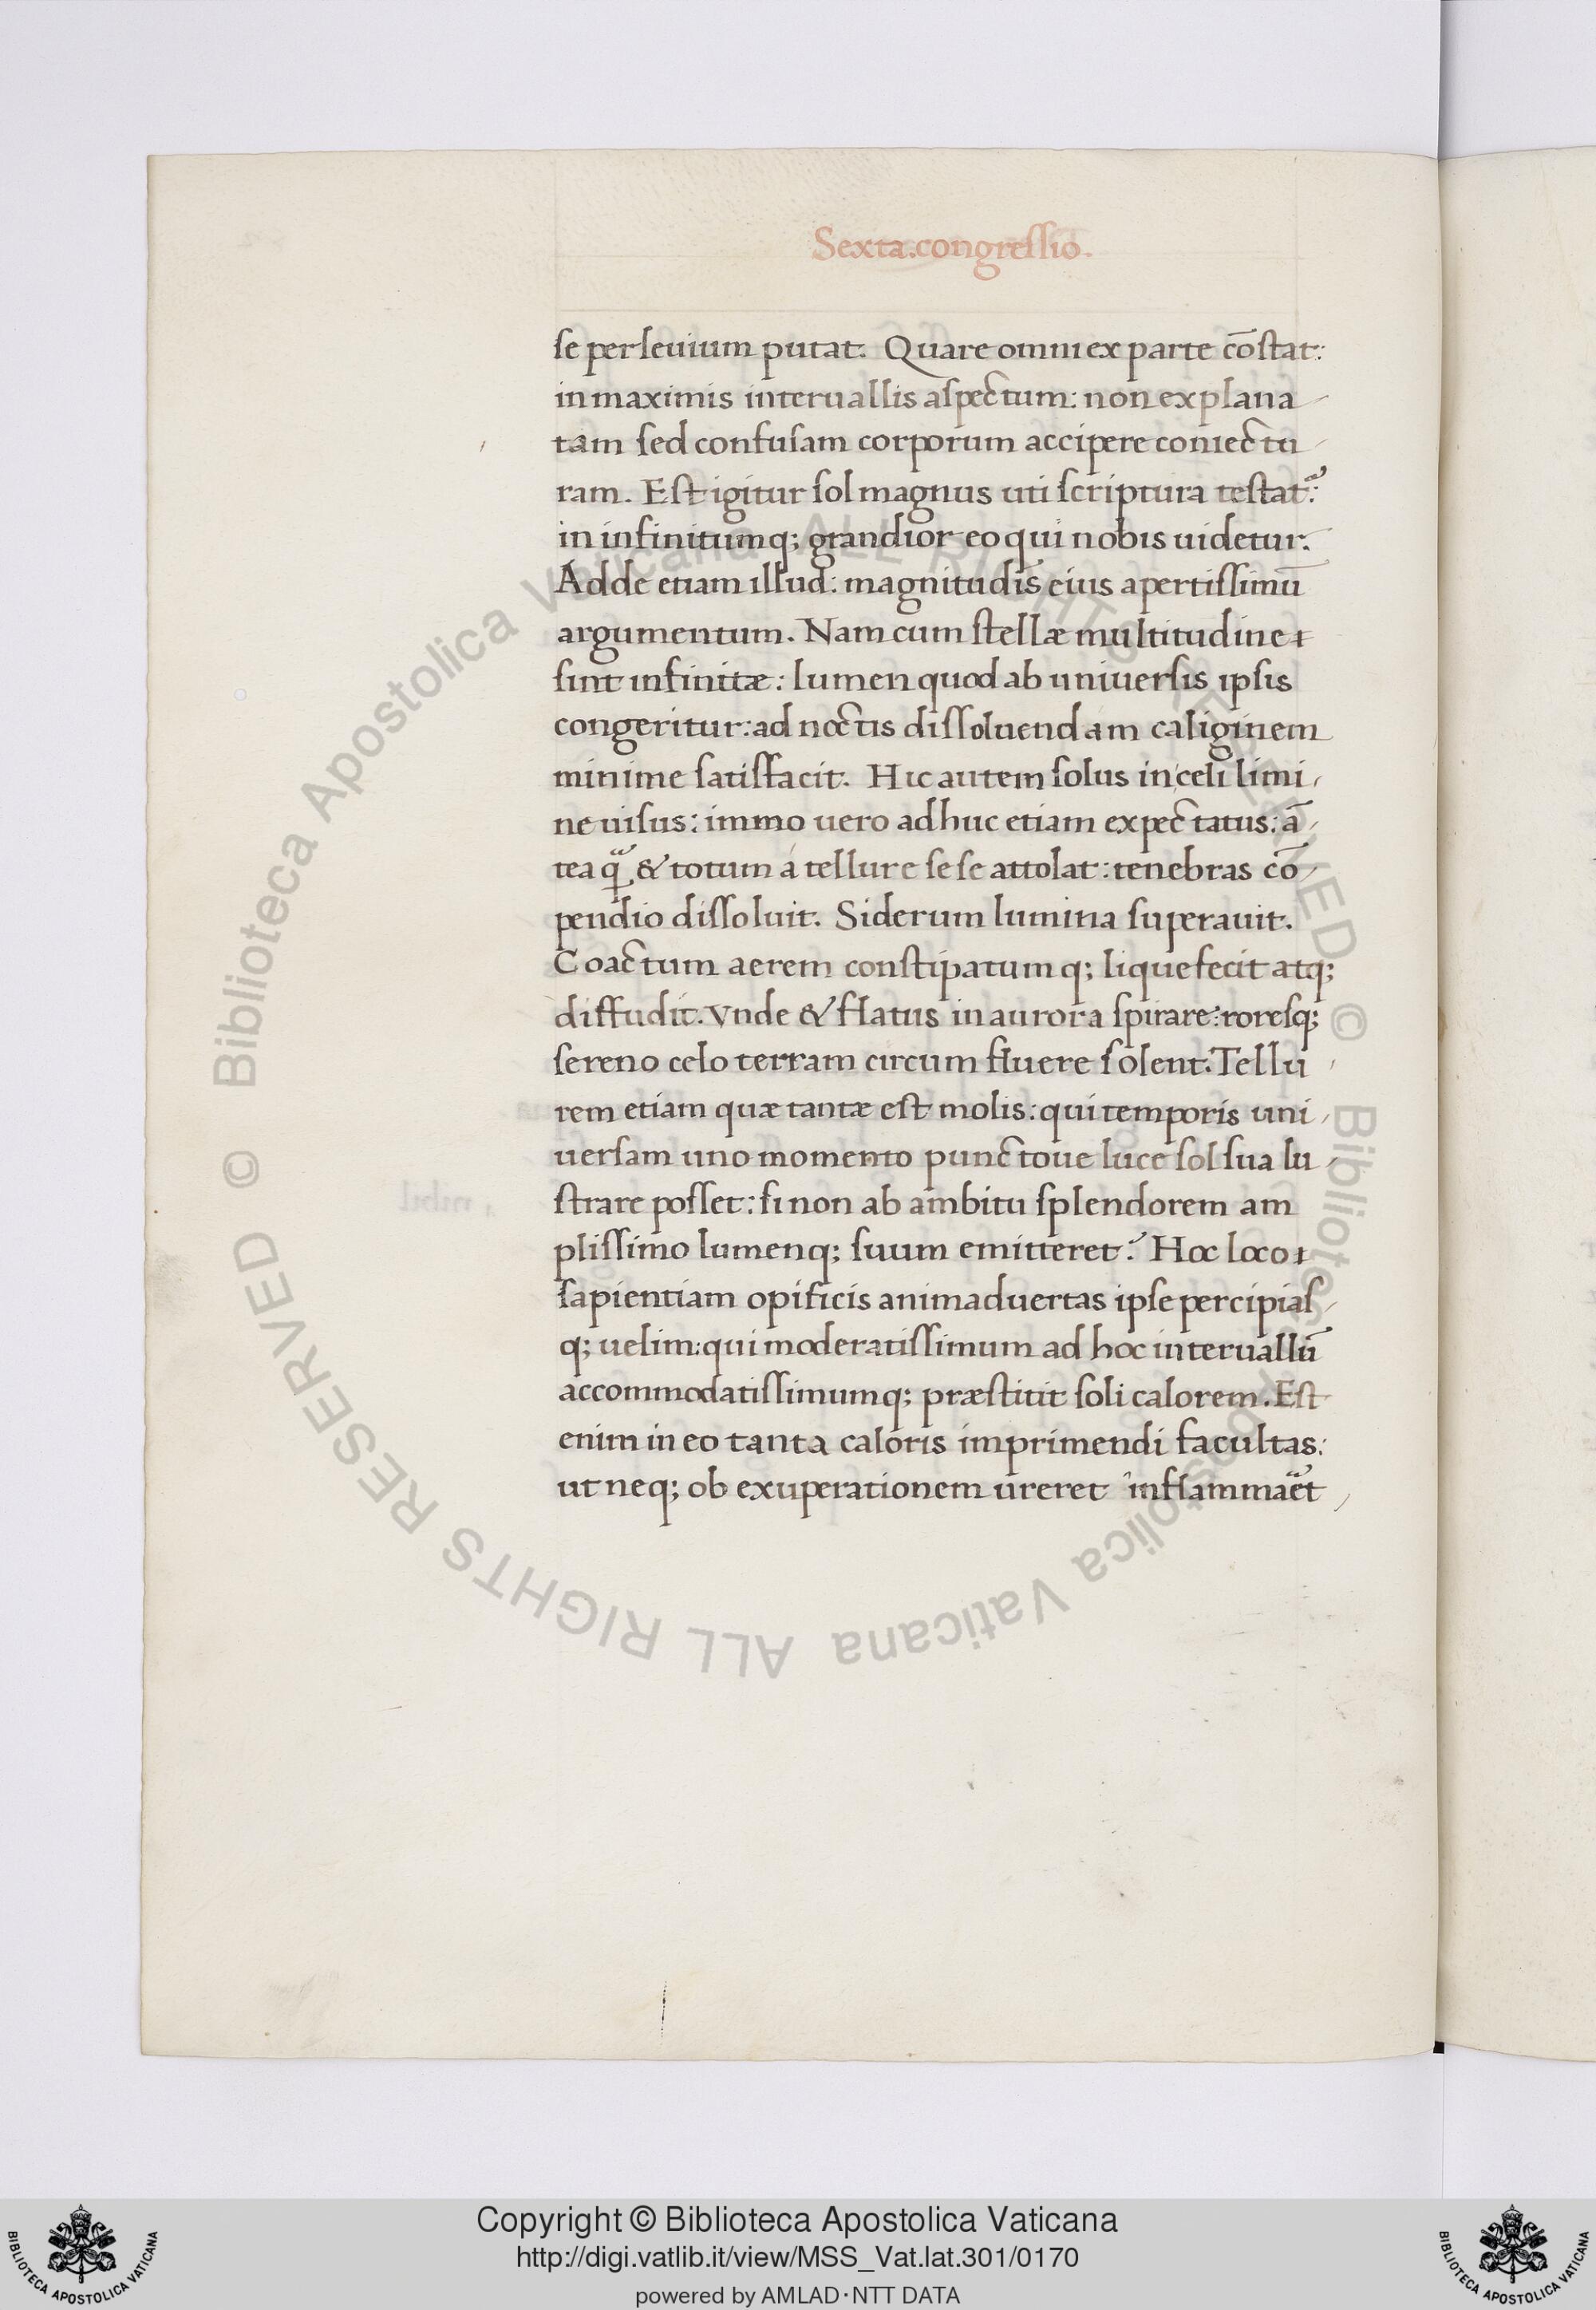 Sexta.congressio.
se perleuium putat. Quare omni ex parte cōstat:
in maximis interuallis aspectum: non explana-
tam sed confusam corporum accipere coniectu-
ram. Est igitur sol magnus uti scriptura testat᷒:
in infinitumq; grandior eo qui nobis uidetur.
Adde etiam illud: magnitudīs eius apertissimū
argumentum. Nam cum stellæ multitudine
sint infinitæ: lumen quod ab uniuersis ipsis
congeritur: ad noctis dissoluendam caliginem
minime satisfacit. Hic autem solus in celi limi-
ne uisus: immo uero adhuc etiam expectatus: ā-
tea qᷓ & totum á tellure se se attolat: tenebras cō-
pendio dissoluit. Siderum lumina superauit.
Coactum aerem constipatumq; liquefecit atq;
diffudit. Vnde & flatus in aurora spirare: roresq;
sereno celo terram circum fluere solent. Tellu-
rem etiam quæ tantæ est molis: qui temporis uni-
uersam uno momento punctoue luce sol sua lu-
strare posset: si non ab ambitu splendorem am
plissimo lumenq; suum emitteret? Hoc loco
sapientiam opificis animaduertas ipse percipias-
q; uelim: qui moderatissimum ad hoc interuallū
accommodatissimumq; præstitit soli calorem. Est
enim in eo tanta caloris imprimendi facultas:
ut neq; ob exuperationem ureret inflammaᷓet
© Biblioteca Apostolica Vaticana ALL RIGHTS RESERVED © Biblioteca Apostolica Vaticana ALL RIGHTS RESERVED
Copyright © Biblioteca Apostolica Vaticana
http://digi.vatlib.it/view/MSS_Vat.lat.301/0170
powered by AMLAD·NTT DATA
BIBLIOTECA APOSTOLICA VATICANA
BIBLIOTECA APOSTOLICA VATICANA